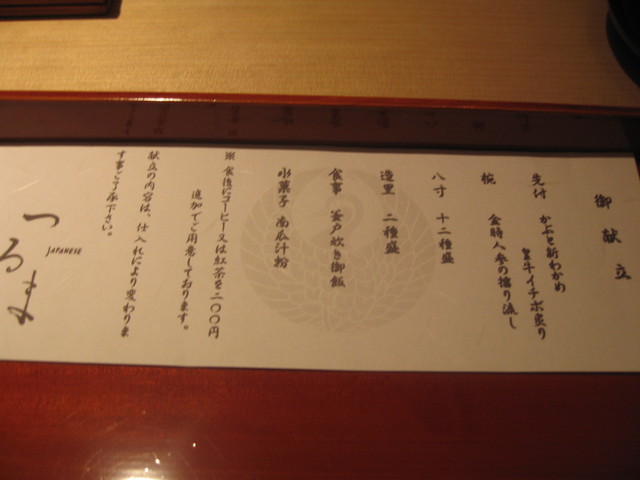 御献立
先付 かぶと新わかめ
黒牛イチボ炙り
椀 金時人参の擂り流し
八寸 十二種盛
造里 二種盛
食事 釜戸炊き御飯
水菓子 南瓜汁粉
※ 食後にコーヒー又は紅茶を二〇〇円
追加でご用意しております。
献立の内容は、仕入れにより変わりま
す事ご了承下さい。
JAPANESE
つるま